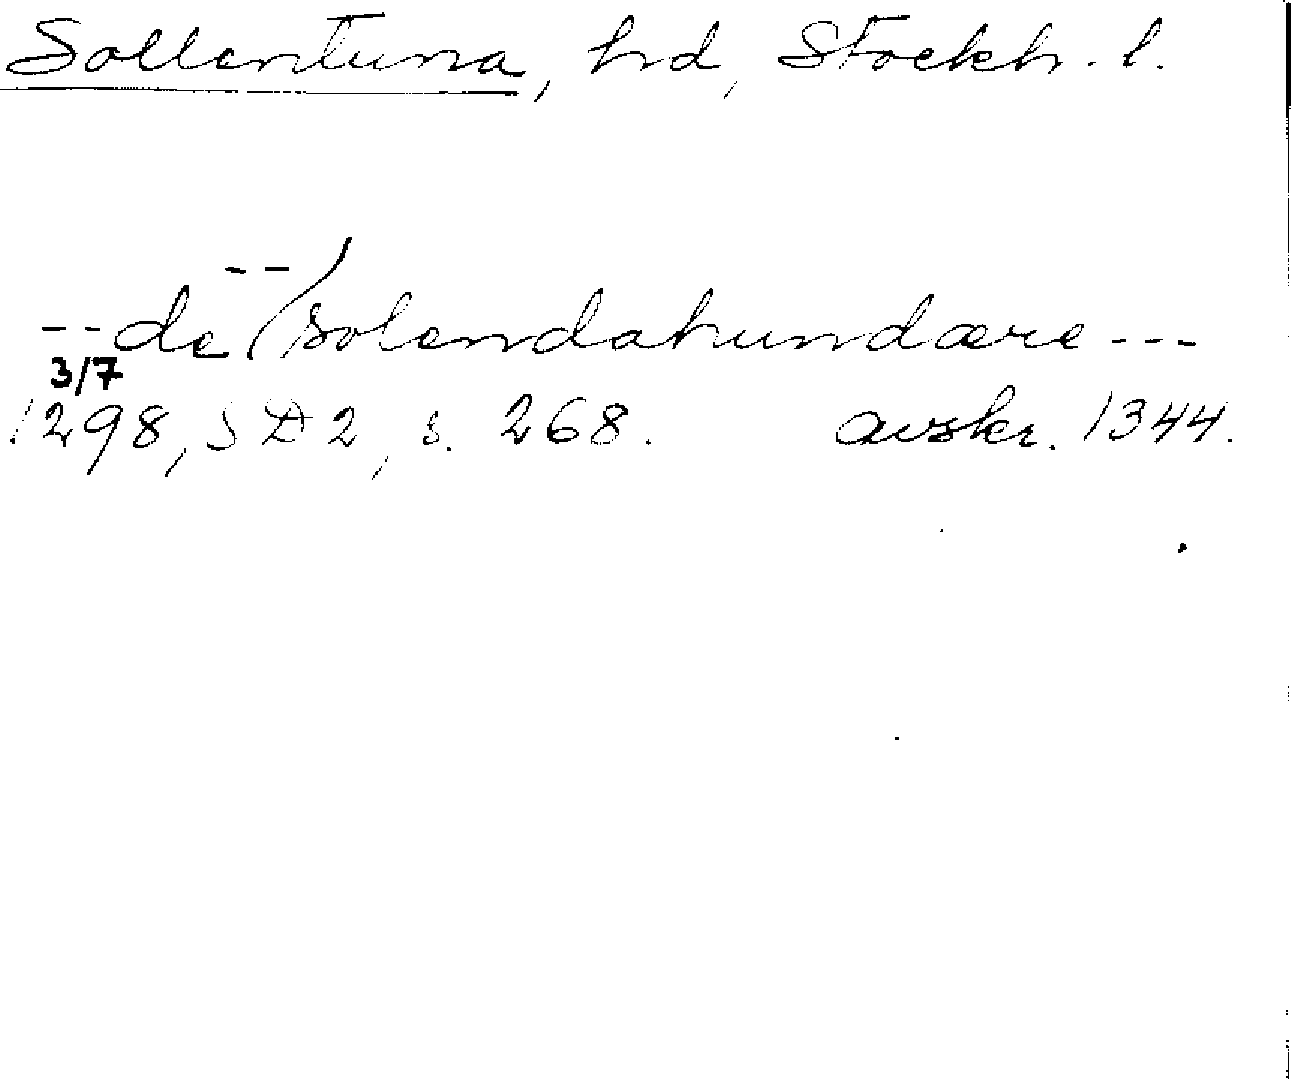 Sollentuna, hd, Stockh. l.
-- 
--de /solendahundære---
3/7
1298, SD2, s. 268. avskr. 1344.